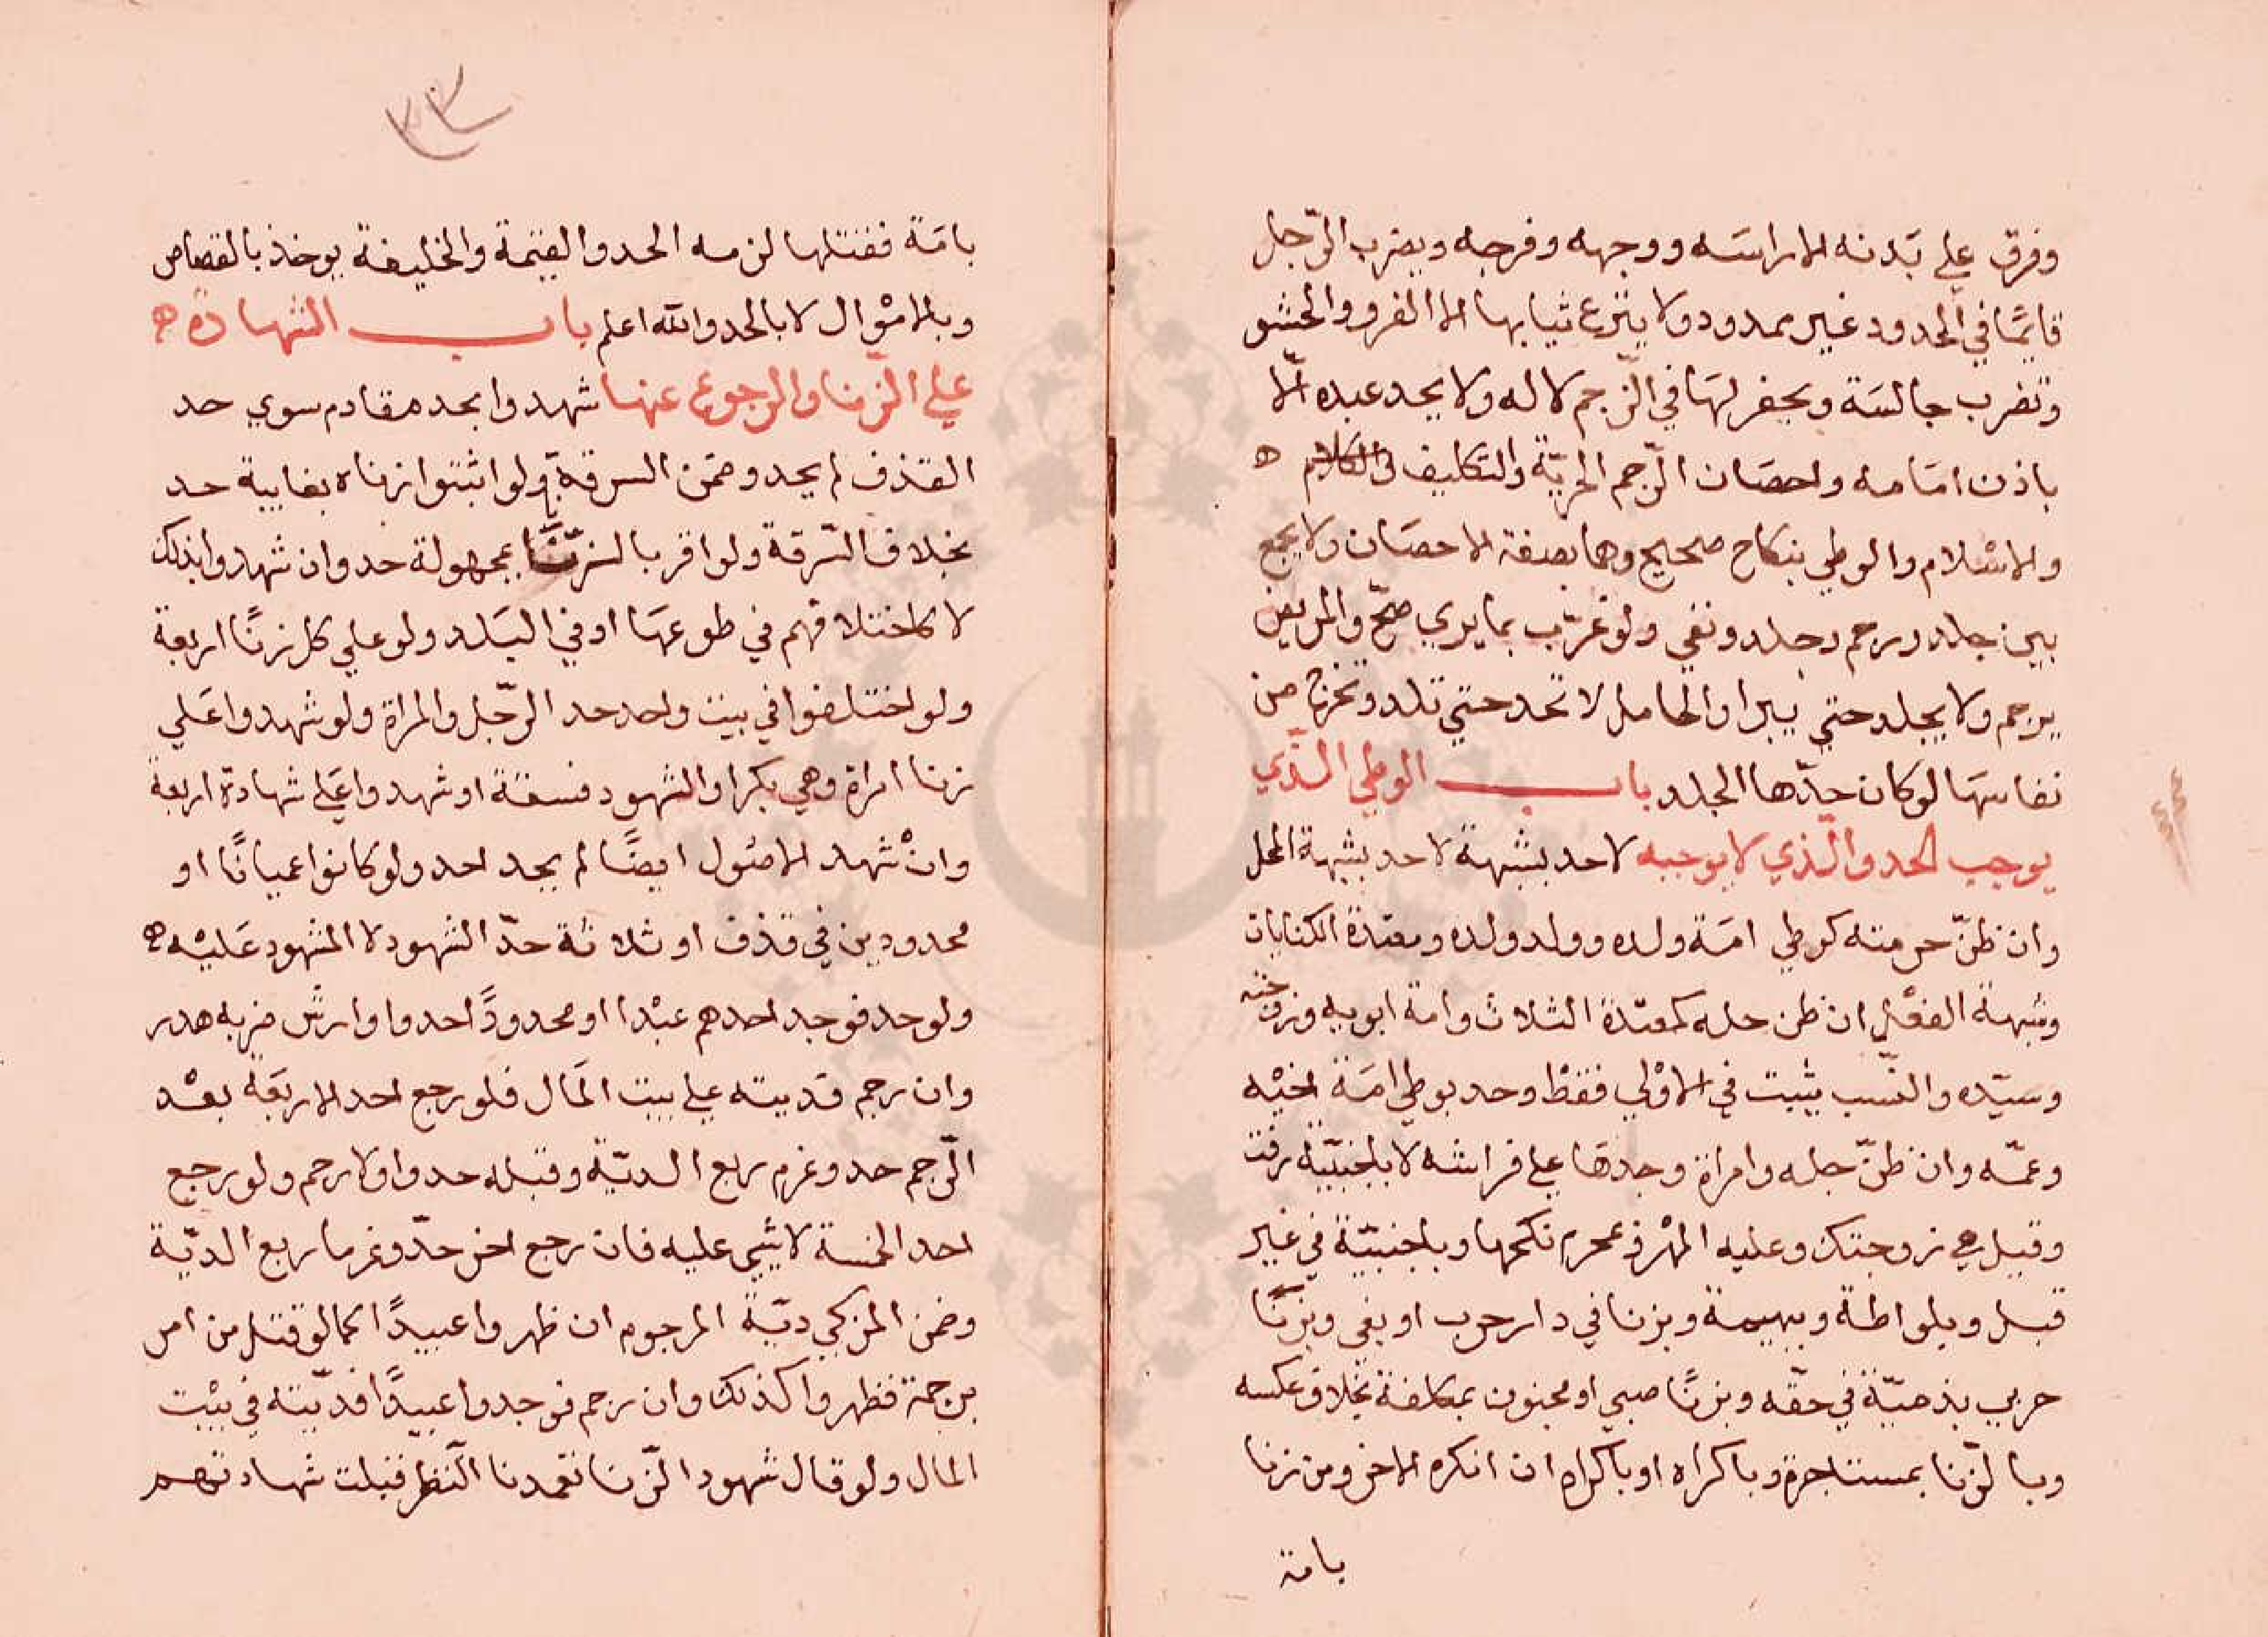 وفرق علي بدنه الا راسه ووجهه وفرجه ويضرب الرّجل
قايمًا في الحدود غير ممدود ولا ينزع ثيابها الا الفرو والحشو
وتضرب جالسة ويحفر لها في الرّجم لا له ولا يحد عبده الّا
باذن امامه واحصان الرّجم الحريّة والتكليف
والاسْلام والوطي بنكاح صحيح وهما بصفة الاحصان ولا يجمع
بين جلد ورجم وجلد ونفي ولو غرّب بما يري صحّ والمريض
يرجم ولا يجلد حتي يبرا والحامل لا تحد حتي تلد وتخرج من
نفاسها لو كان حدّها الجلد باب الوطي الّذي
يوجب الحد والّذي لا يوجبه لا حد بشبهة لا حد بشبهة المحل
وان ظنّ حرمته كوطي امة ولده وولد ولده ومعتدة الكنايات
وشبهة الفعْل ان ظن حله كمعتدّة الثلاث وامة ابويه وزوجته
وسيّده والنسب يثبت في الاوْلي فقطْ وحد بوطي امة اخيْه
وعمّه وان ظنّ حله وامراة وجدها علي فراشه لا باجنبيّة زفت
وقيل هي زوجتك وعليه المهْر في محرم نكحها وباجنبيّة في غير
قبل وبلواطة وبهيمة وبزنا في دار حرب او بغي وبزنًا
حربي بذميّة في حقّه وبزنًا صبي او مجنون بمكلفة بخلاف عكسه
وبالزّنا بمستاجرة وباكراه او باكراه ان انكره الاخر ومن زنا
بامة
٣٣
بامَة فقتلها لزمه الحد والقيمة والخليفة يوخذ بالقصاص
وبالامْوال لا بالحد والله اعلم باب الشهادة
علي الزّنا والرجوع عنها شهدوا بحد متقادم سوي حد
القذف لم يحد وضمن السرقة ولو اثبتوا زناه بغايبة حد
بخلاف السّرقة ولو اقر بالزّنا بمجهولة حد وان شهدوا بذلك
لا كاختلافهم في طوعها او في البلد ولو علي كل زنًا اربعة
ولو اختلفوا في بيت واحد حد الرّجل والمراة ولو شهدوا علي
زنا امراة وهي بكر او الشهود فسقة او شهدوا علي شهادة اربعة
وانْ شهد الاصُول ايضًا لم يحد احد ولو كانوا عميانًا او
محدودين في قذف او ثلاثة حدّ الشهود لا المشهود عليْه
ولو حد فوجد احدهم عبْدا او محدودًا حدوا وارش ضربه هدر
وان رجم فديته علي بيت المال فلو رجع احد الاربعة بعْد
الّرجم حد وغرم ربع الديّة وقبله حدوا ولا رجم ولو رجع
احد الخمسة لا شي عليه فان رجع اخر حدّ وغرما ربع الديّة
وضمن المزكي ديّة المرجوم ان ظهروا عبيدًا كما لو قتل من امر
برجمة فظهروا كذلك وان رجم فوجدوا عبيدًا فديّته في بيْت
المال ولو قال شهود الزّنا تعمدنا النّظر قبلت شهادتهم